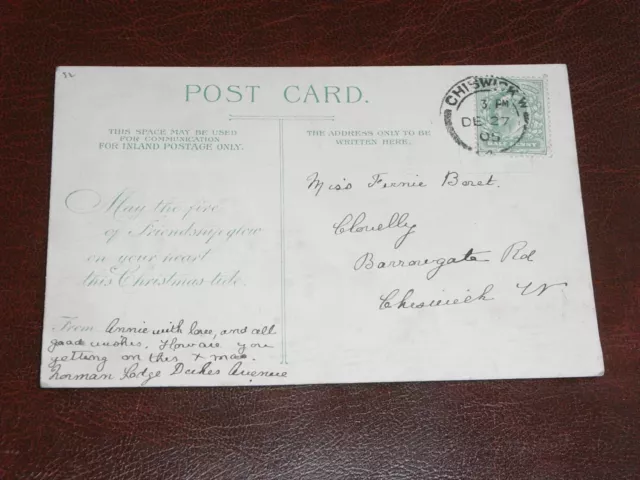 POST CARD.
THIS SPACE MAY BE USED
FOR COMMUNICATION
FOR INLAND POSTAGE ONLY.
THE ADDRESS ONLY TO BE
WRITTEN HERE.
CHISWICK. W
3 PM
DE 27
05
May the fire
of Friendship glow
on your heart
this Christmas tide.
From Annie with love, and all
good wishes. How are you
getting on this Xmas.
Norman Lodge Dukes Avenue
Miss Fernie Boret.
Clovelly
Barrowgate Rd
Chiswick W